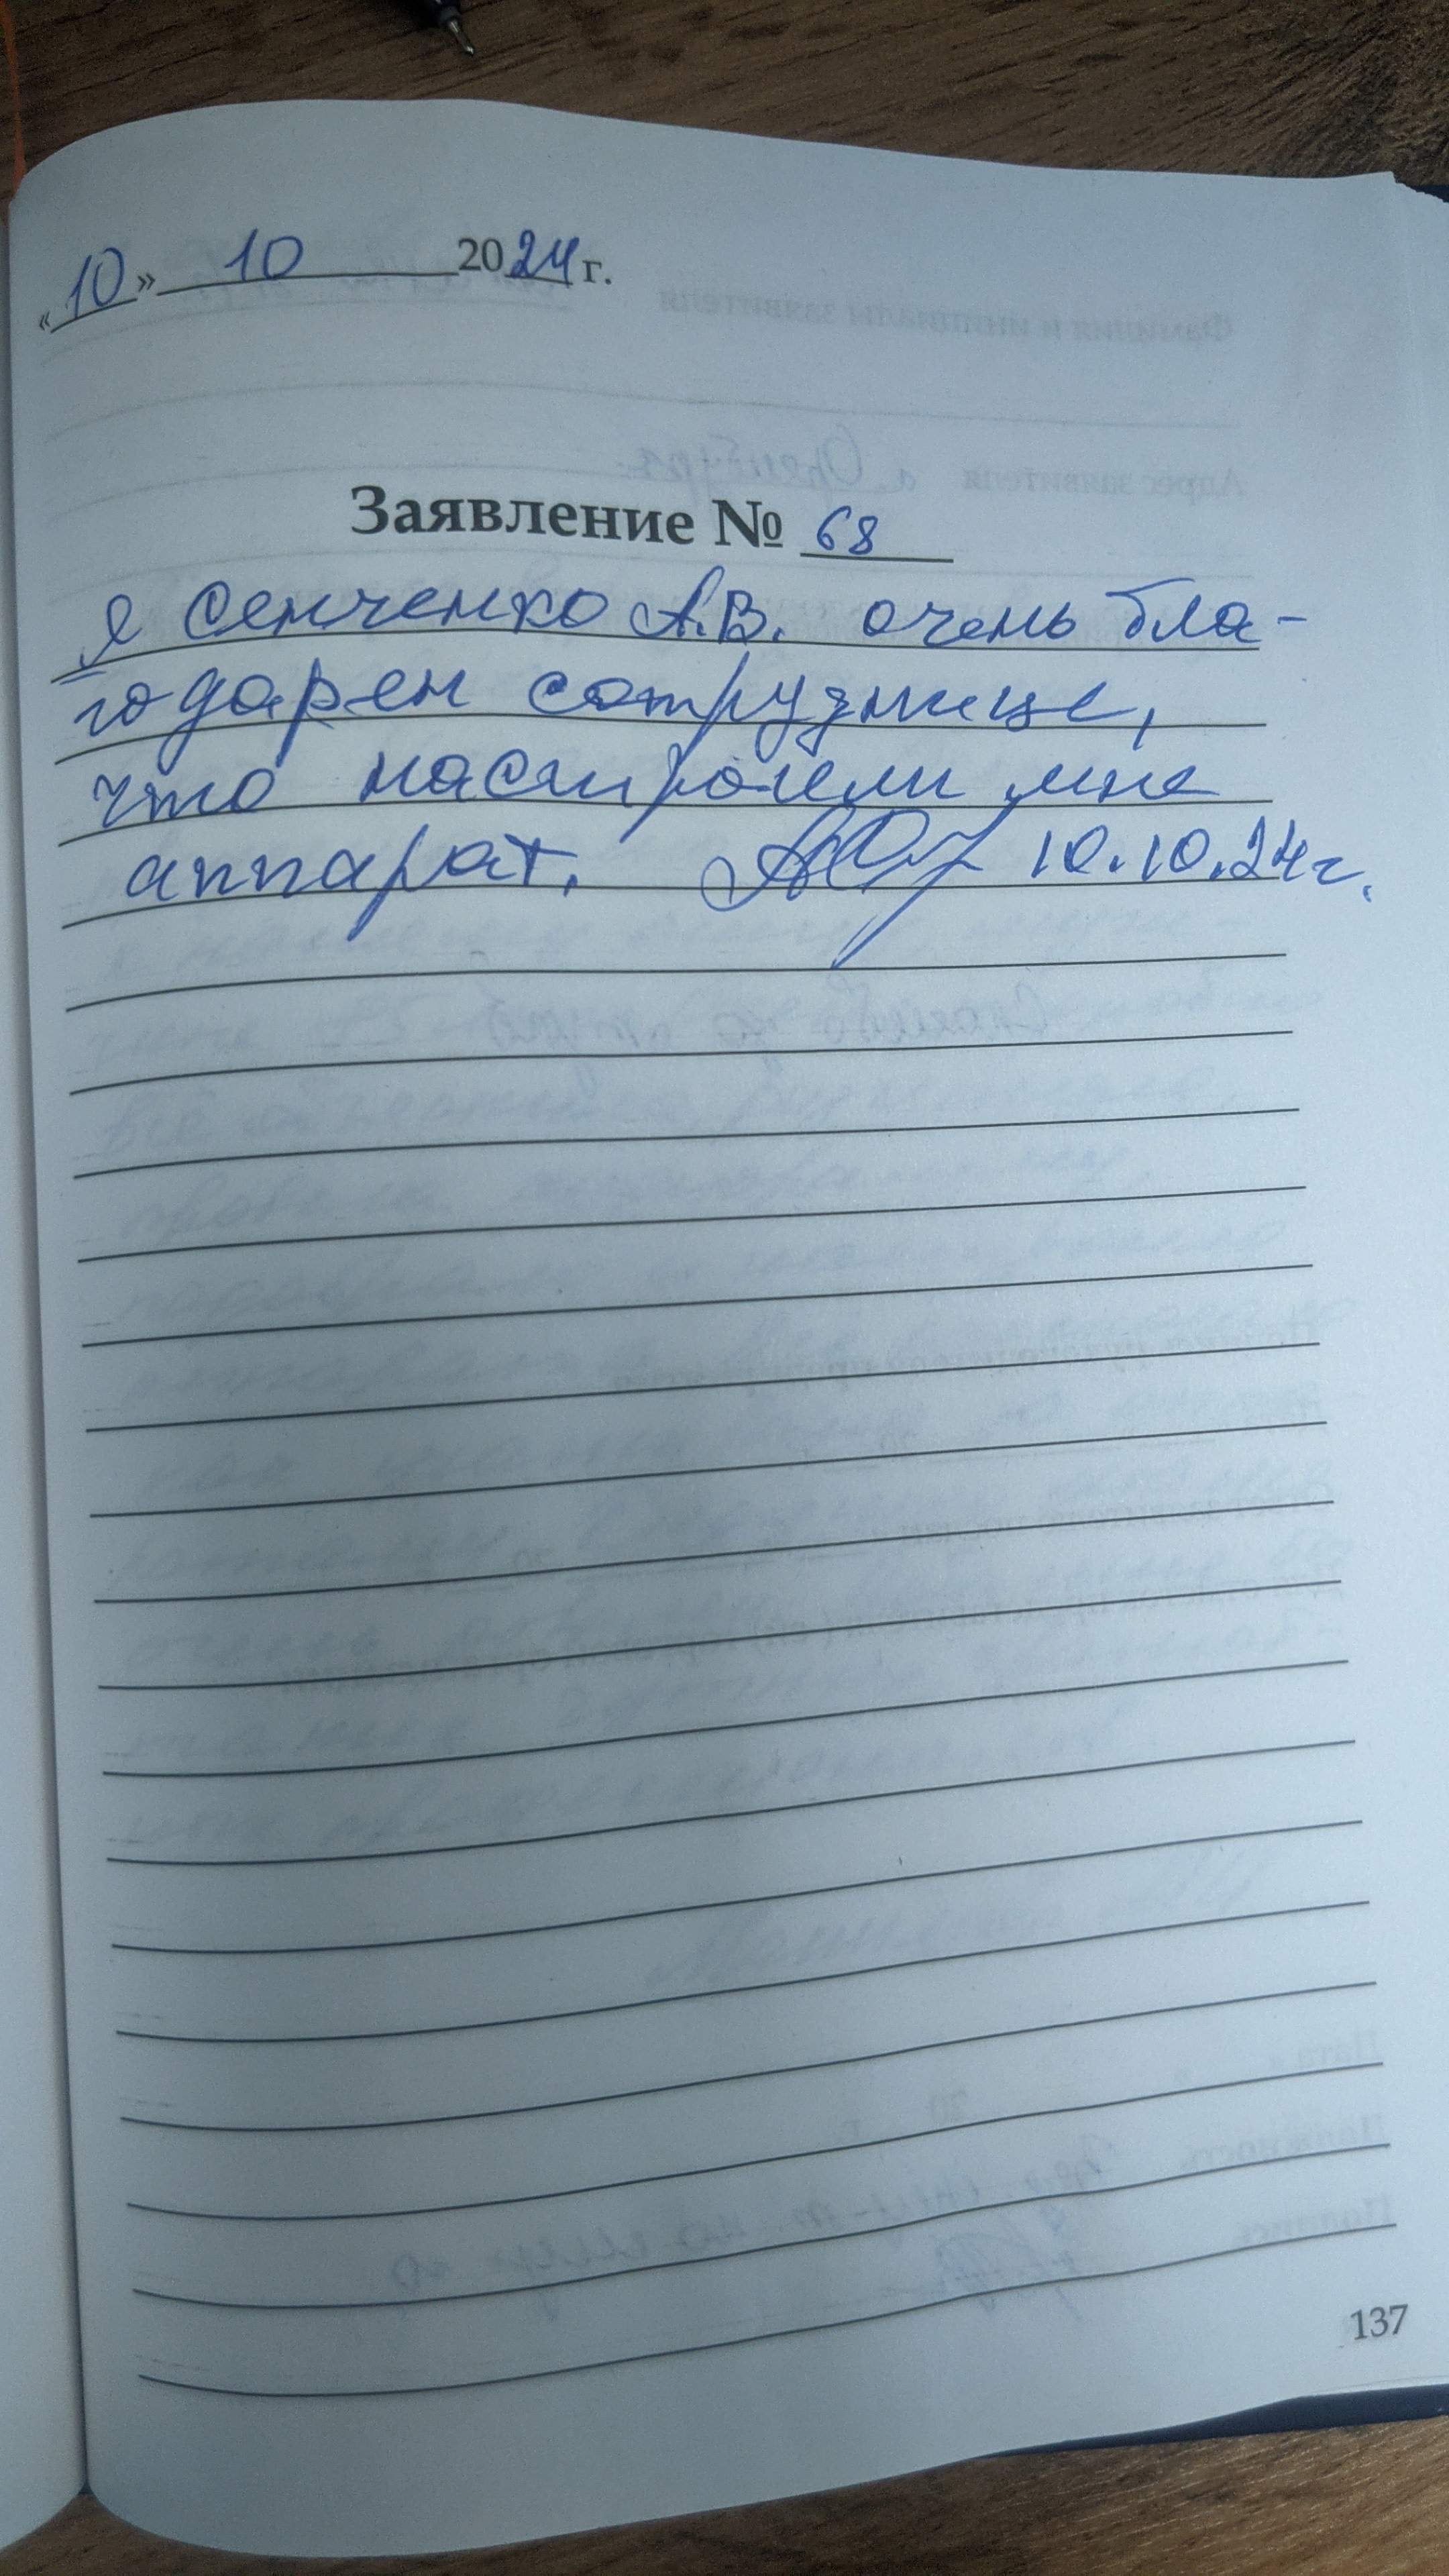 «10» 10 2024 г.
Заявление № 68
я Сенченко А.В. очень бла-
годарен сотруднице,
что настроили мне
аппарат. 10.10.24г.
137